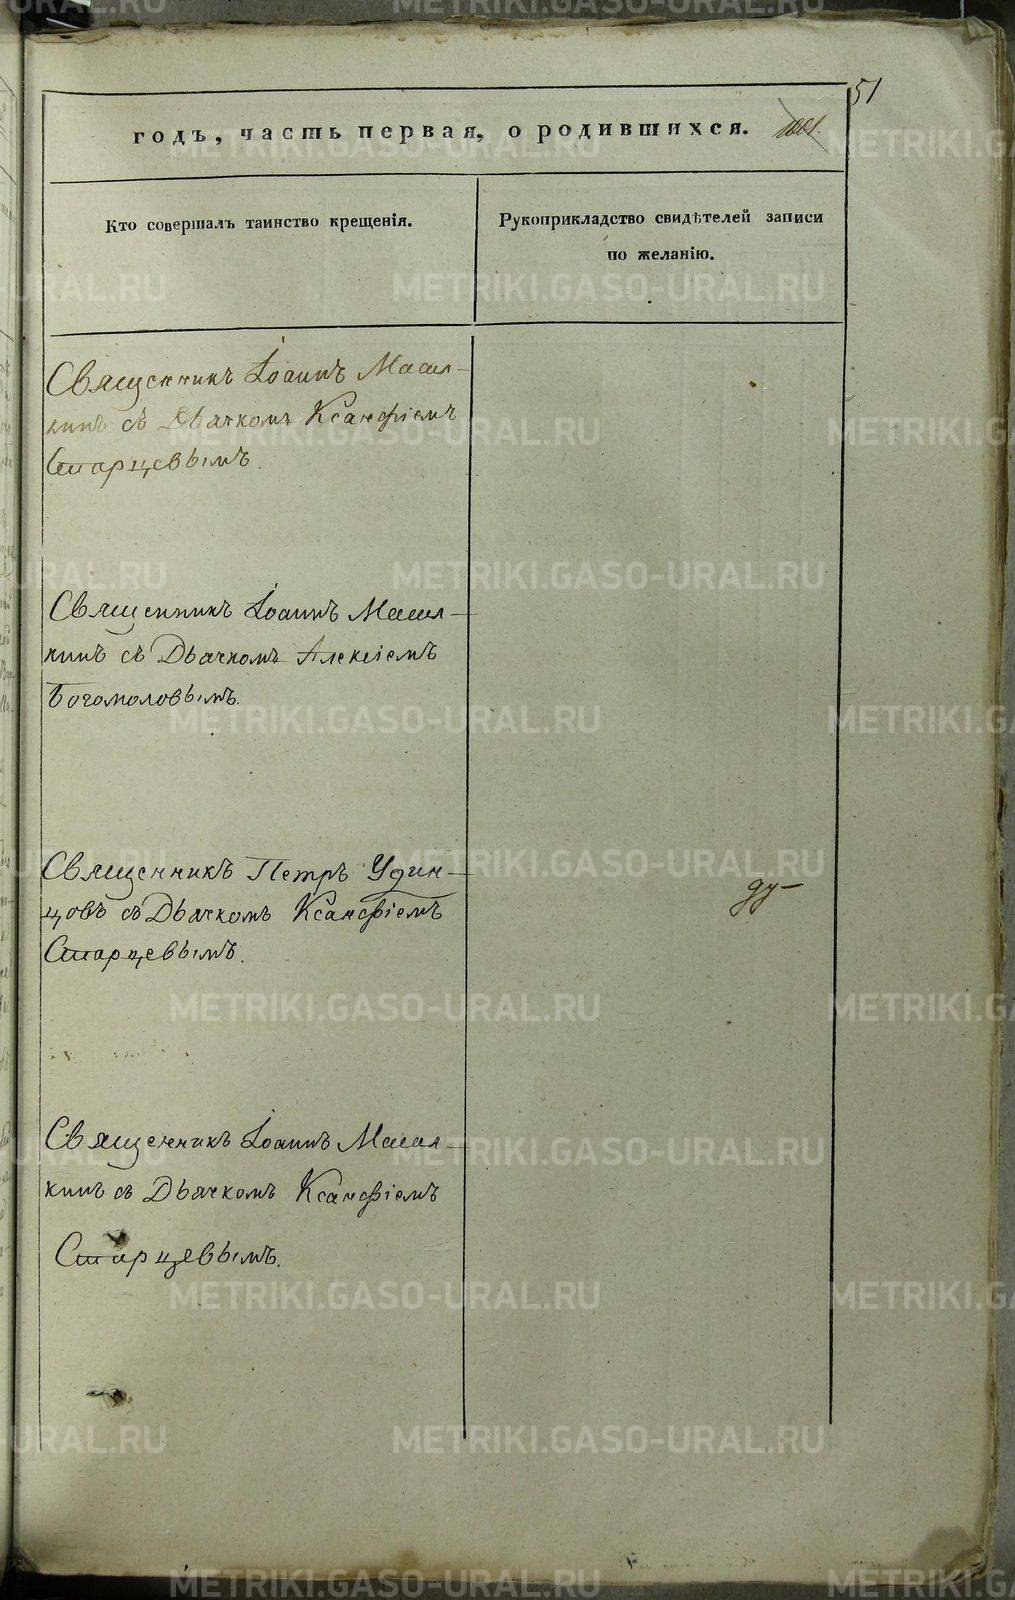 51
годъ, часть первая, о родившихся.
Кто совершалъ таинство крещенія.
Рукоприкладство свидѣтелей записи
по желанію.
Священникъ Іоаннъ
съ Дьячкомъ Ксанфіемъ
Старцевымъ.
Священникъ Іоаннъ
съ Дьячкомъ Алексіемъ
Богомоловымъ.
Священникъ Петръ Удин-
цовъ съ Дьячкомъ Ксанфіемъ
Старцевымъ.
Священникъ Іоаннъ
съ Дьячкомъ Ксанфіемъ
Старцевымъ.
METRIKI.GASO-URAL.RU